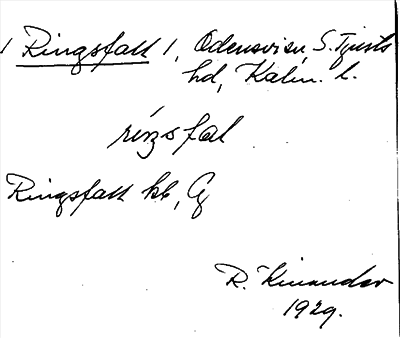 1 Ringsfall 1, Odensvi sn, S. Tjusts
hd, Kalm. l.
ringsfal
Ringsfall kb, G
R. Kinander
1929.